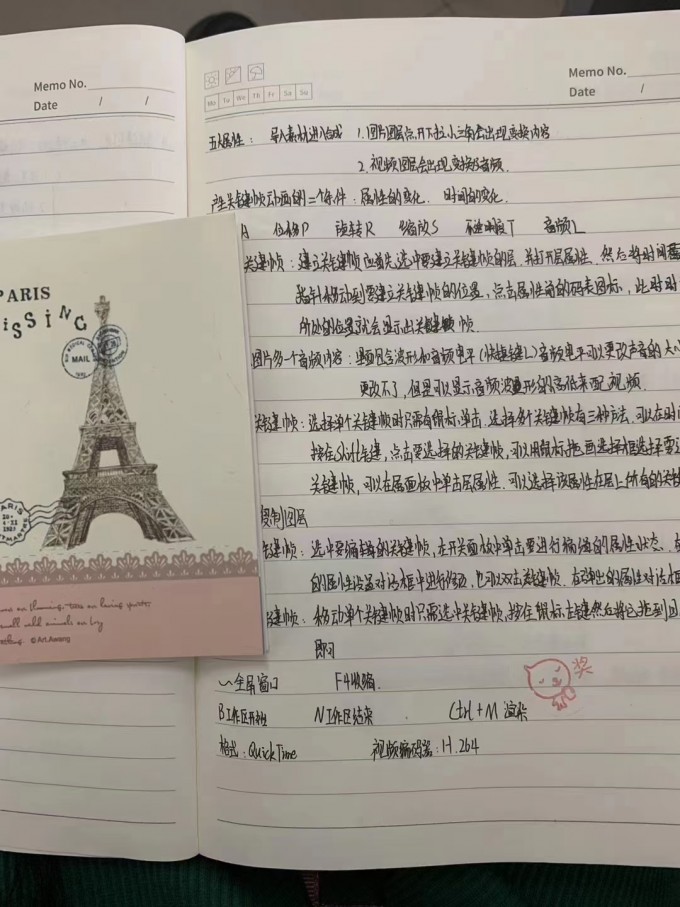 Memo No.
Date / /
Memo No.
Date /
Mo Tu We Th Fr Sa Su
五大属性： 导入素材进入合成 1.图片图层点开下拉小三角会出现变换内容
2.视频图层会出现变换音频.
产生关键帧动画的二个条件：属性的变化. 时间的变化.
A 位移P 旋转R 缩放S 不透明度T 音频L
关键帧：建立关键帧应首先选中要建立关键帧的层，并打开层属性，然后将时间
指针移动到要建立关键帧的位置，点击属性前的码表图标，此时时
所处的位置就会显示出关键帧.
图片多一个音频内容：里面包含波形和音频电平(快捷键L)音频电平可以更改声音的大小
更改不了，但是可以显示音频波形的高低来配视频.
关键帧：选择单个关键帧时只需有鼠标单击.选择多个关键帧有三种方法.可以在时
按住Shift键，点击要选择的关键帧，可以用鼠标拖画选择框选择要
关键帧，可以在层面板中单击层属性.可以选择该属性在层上所有的关键
复制图层
键帧：选中要编辑的关键帧，在开关面板中单击要进行编辑的属性状态.
的属性设置对话框中进行修改，也可以双击关键帧，在弹出的属性对话框
键帧：移动单个关键帧时只需选中关键帧，按住鼠标左键然后将它拖到目
即可
~全屏窗口 F4收缩.
奖
B工作区开始 N工作区结束 . Ctrl+M 渲染
格式：QuickTime 视频编码器：H.264
PARIS
MISSING
MAIL
PARIS
© Art.Awang